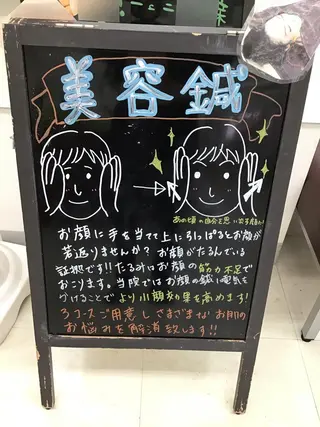 美容鍼
あの頃の自分を思い出す
お顔に手を当てて上に引っぱるとお顔が
若返りませんか？お顔がたるんでいる
証拠です!!たるみはお顔の筋力不足で
おこります。当院ではお顔の鍼に電気を
かけることでより小顔効果を高めます!
3コースご用意しさまざまなお肌の
お悩みを解消致します!!